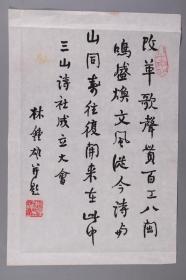 改革歌声贯百工八闽
鸣盛焕文风从今诗与
山同寿往复开来在此中
三山诗社成立大会
林钟雄并题